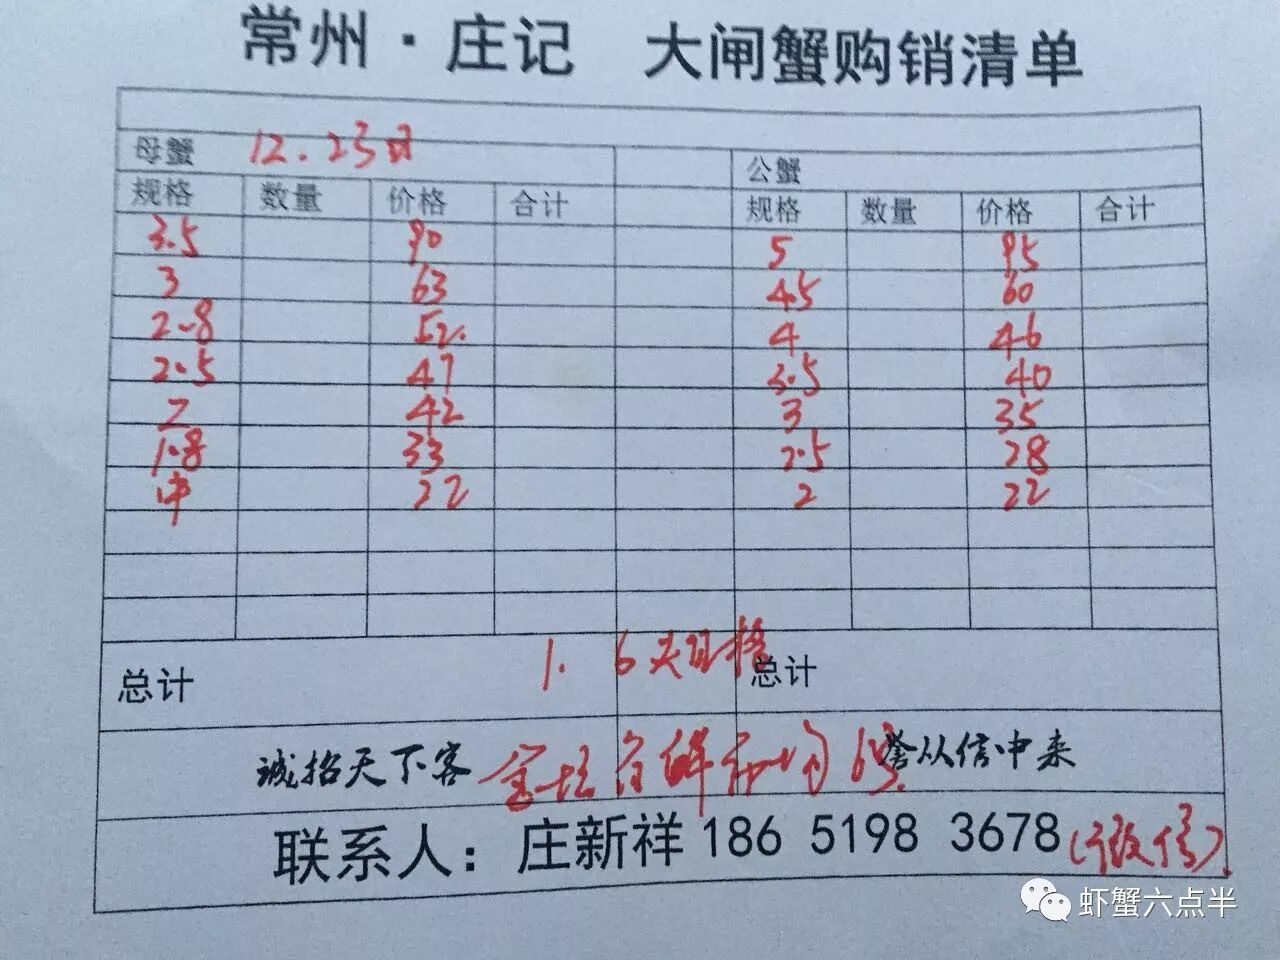 常州·庄记 大闸蟹购销清单
母蟹 12.23日 公蟹
规格 数量 价格 合计 规格 数量 价格 合计
3.5 90 5 95
3 63 4.5 60
2.8 52. 4 46
2.5 47 3.5 40
2 42 3 35
1.8 33 2.5 28
中 22 2 22
总计 1. 6 总计
诚招天下客 金坛 市场 6号 誉从信中来
联系人：庄新祥 186 5198 3678（微信）
虾蟹六点半